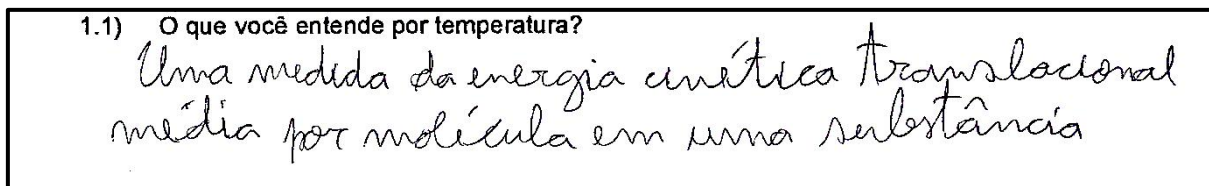 1.1) O que você entende por temperatura?
Uma medida da energia cinética translacional
média por molécula em uma substância